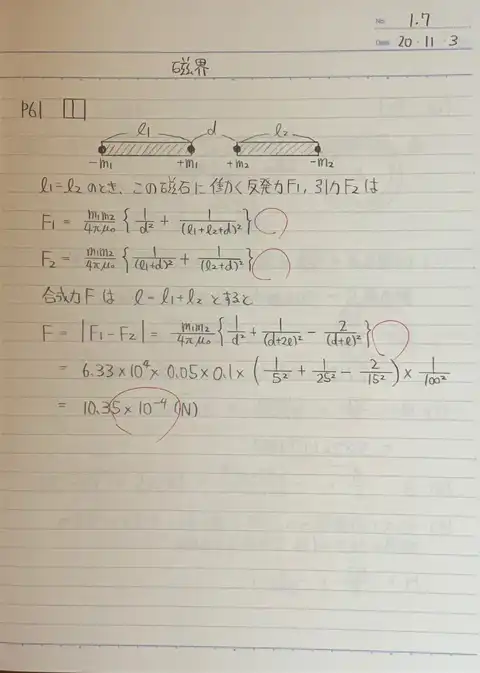 No. 1.7
Date 20・11・3
磁界
P61 [1]
l₁ d l₂
-m₁ +m₁ +m₂ -m₂
l₁=l₂ のとき、この磁石に働く反発力F₁, 引力F₂は
F₁ = m₁m₂/4πμ₀ { 1/d² + 1/(l₁+l₂+d)² }
F₂ = m₁m₂/4πμ₀ { 1/(l₁+d)² + 1/(l₂+d)² }
合成力Fは l=l₁+l₂ とすると
F = |F₁-F₂| = m₁m₂/4πμ₀ { 1/d² + 1/(d+2l)² - 2/(d+l)² }
= 6.33×10⁴× 0.05×0.1× ( 1/5² + 1/25² - 2/15² ) × 1/100²
= 10.35×10⁻⁴ (N)